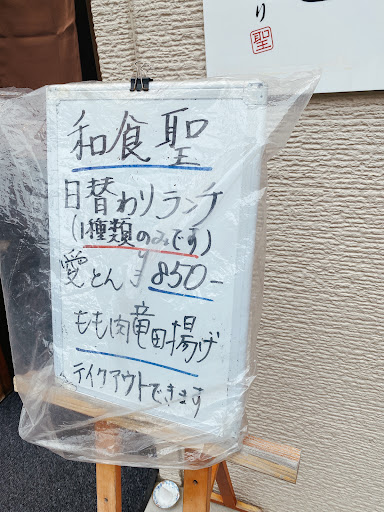 り
聖
和食 聖
日替わりランチ
(1種類のみです)
愛とん 850-
もも肉竜田揚げ
テイクアウトできます